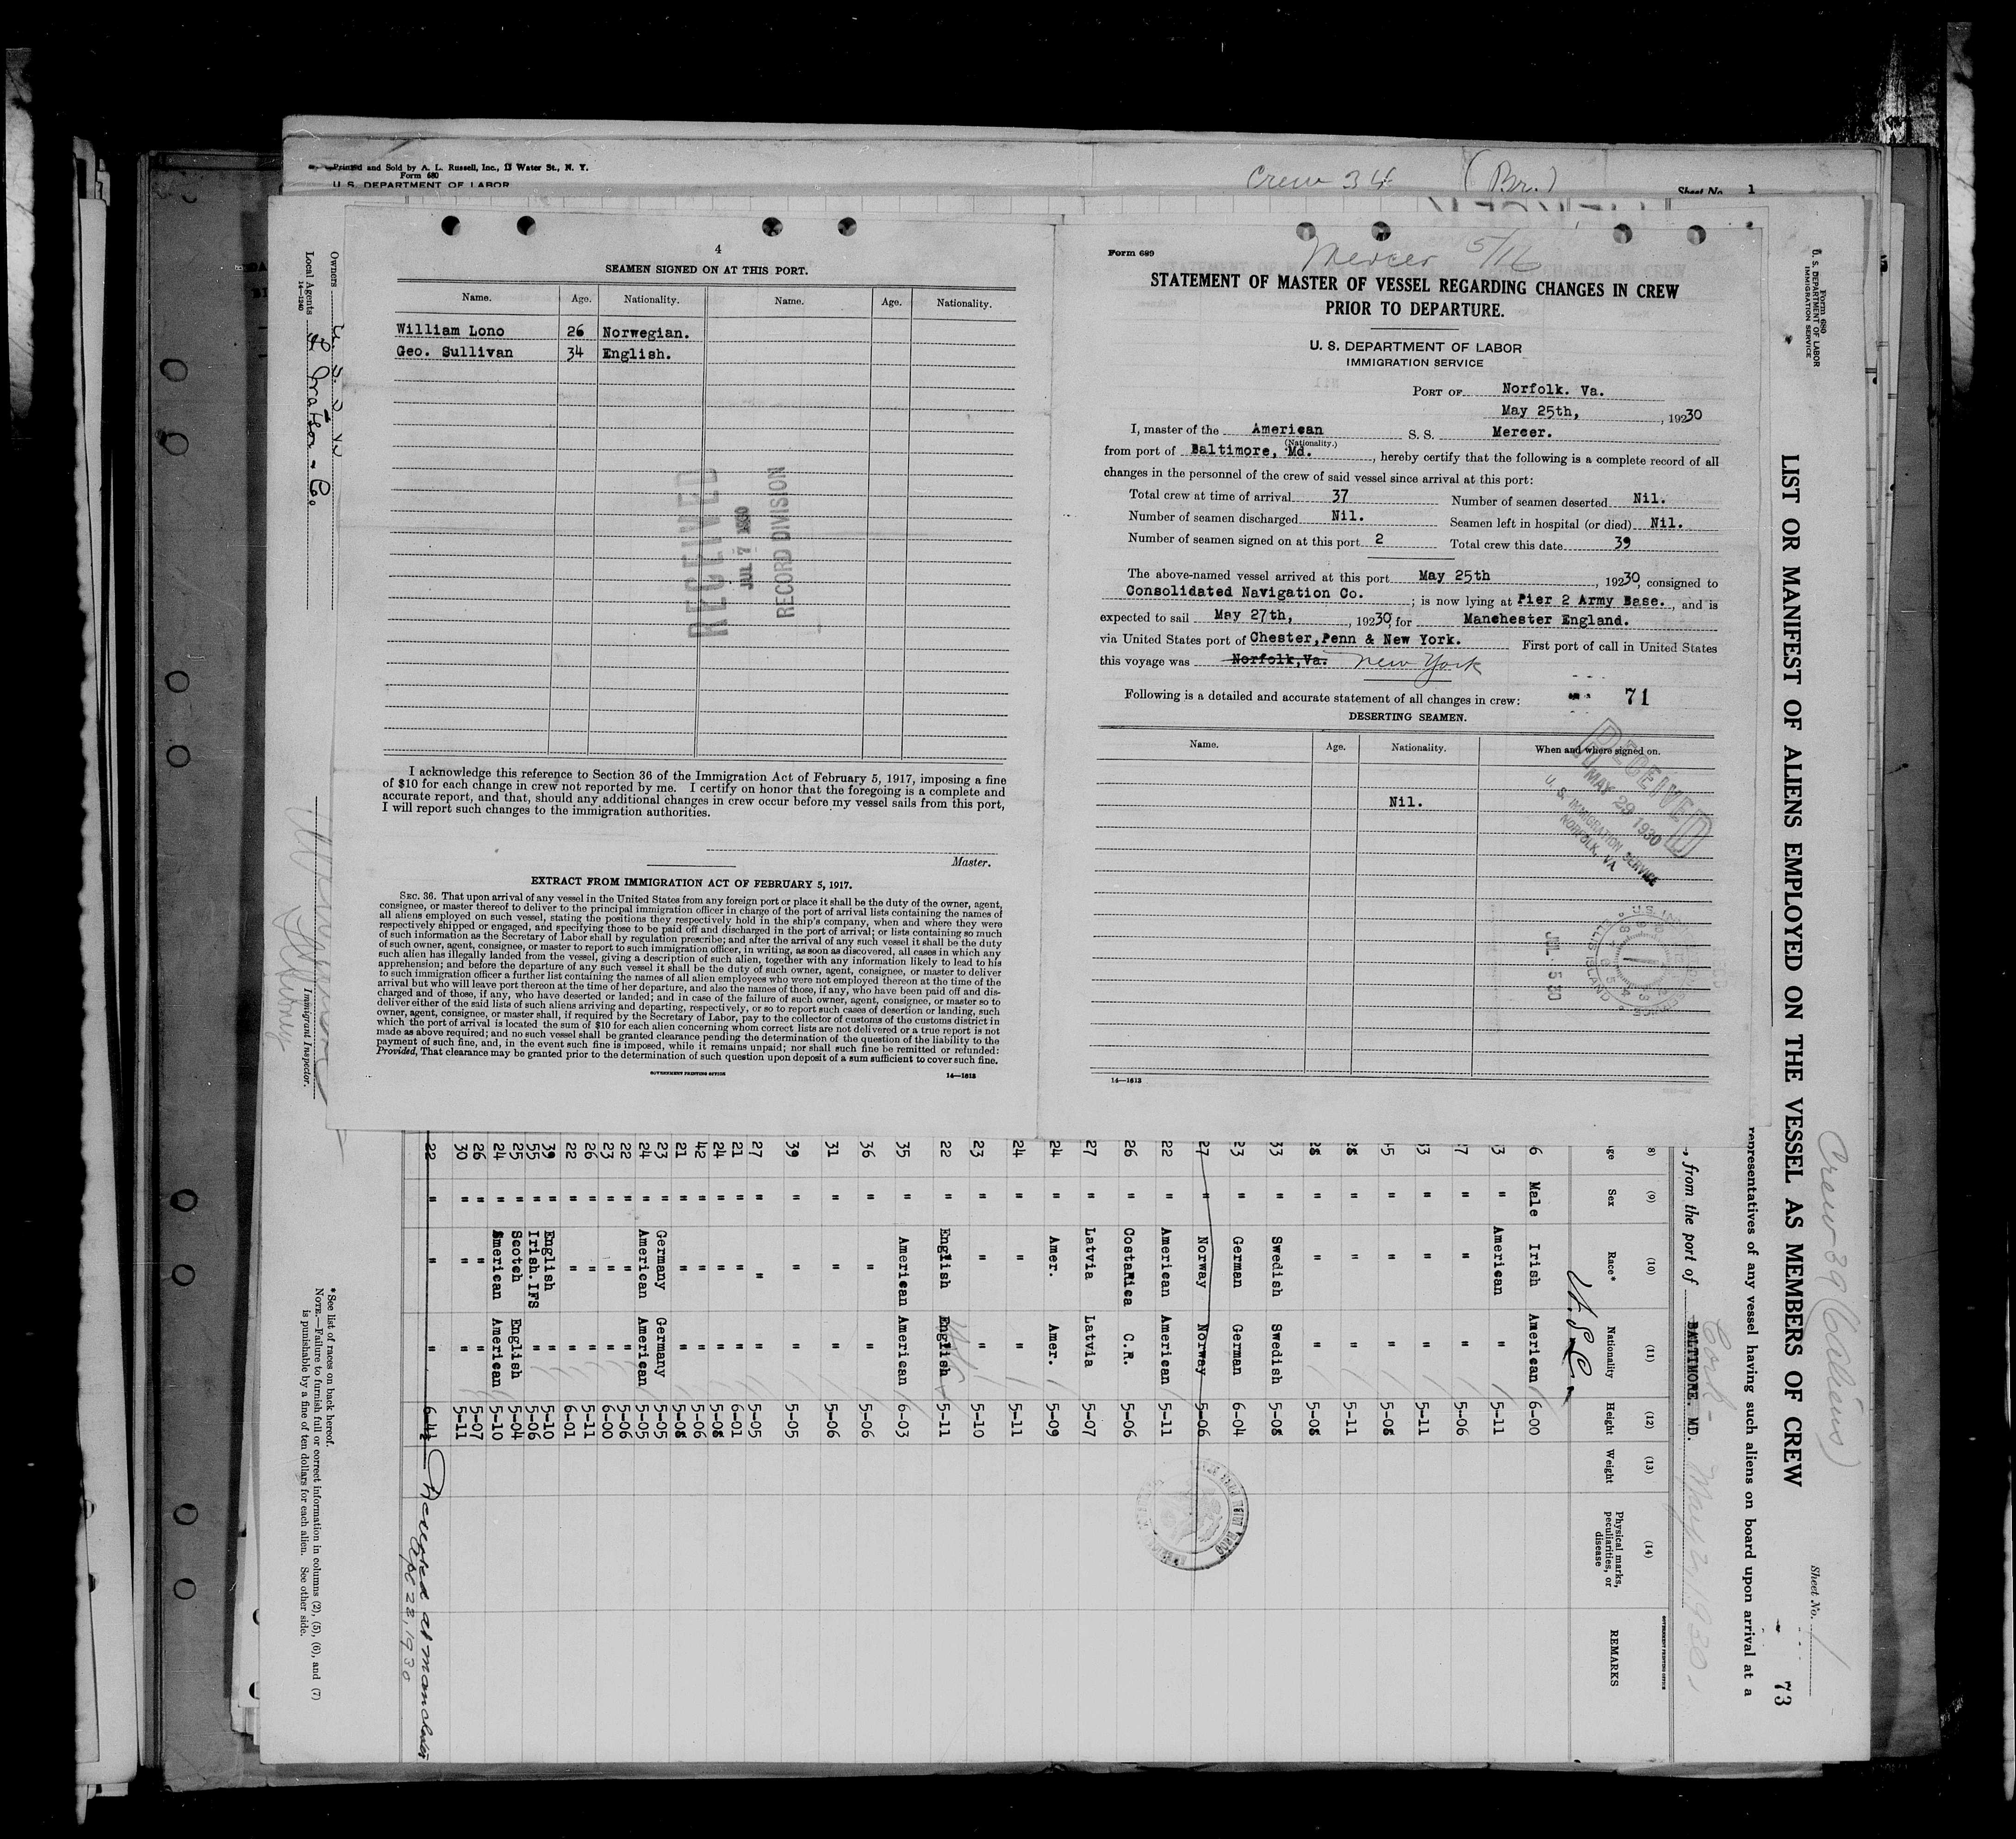 Printed and Sold by A. L. Russell, Inc., 13 Water St., N. Y.
Form 680
U. S. DEPARTMENT OF LABOR
Crew 34 (Br.)
Sheet No. 1
4
SEAMEN SIGNED ON AT THIS PORT.
Name. Age. Nationality. Name. Age. Nationality.
William Lono 26 Norwegian.
Geo. Sullivan 34 English.
RECEIVED
JUL 7 1930
RECORD DIVISION
I acknowledge this reference to Section 36 of the Immigration Act of February 5, 1917, imposing a fine
of $10 for each change in crew not reported by me. I certify on honor that the foregoing is a complete and
accurate report, and that, should any additional changes in crew occur before my vessel sails from this port,
I will report such changes to the immigration authorities.
Master.
EXTRACT FROM IMMIGRATION ACT OF FEBRUARY 5, 1917.
SEC. 36. That upon arrival of any vessel in the United States from any foreign port or place it shall be the duty of the owner, agent,
consignee, or master thereof to deliver to the principal immigration officer in charge of the port of arrival lists containing the names of
all aliens employed on such vessel, stating the positions they respectively hold in the ship's company, when and where they were
respectively shipped or engaged, and specifying those to be paid off and discharged in the port of arrival; or lists containing so much
of such information as the Secretary of Labor shall by regulation prescribe; and after the arrival of any such vessel it shall be the duty
of such owner, agent, consignee, or master to report to such immigration officer, in writing, as soon as discovered, all cases in which any
such alien has illegally landed from the vessel, giving a description of such alien, together with any information likely to lead to his
apprehension; and before the departure of any such vessel it shall be the duty of such owner, agent, consignee, or master to deliver
to such immigration officer a further list containing the names of all alien employees who were not employed thereon at the time of the
arrival but who will leave port thereon at the time of her departure, and also the names of those, if any, who have been paid off and dis-
charged and of those, if any, who have deserted or landed; and in case of the failure of such owner, agent, consignee, or master so to
deliver either of the said lists of such aliens arriving and departing, respectively, or so to report such cases of desertion or landing, such
owner, agent, consignee, or master shall, if required by the Secretary of Labor, pay to the collector of customs of the customs district in
which the port of arrival is located the sum of $10 for each alien concerning whom correct lists are not delivered or a true report is not
made as above required; and no such vessel shall be granted clearance pending the determination of the question of the liability to the
payment of such fine, and, in the event such fine is imposed, while it remains unpaid; nor shall such fine be remitted or refunded:
Provided, That clearance may be granted prior to the determination of such question upon deposit of a sum sufficient to cover such fine.
GOVERNMENT PRINTING OFFICE 14—1613
Form 689
Mercer 5/16
STATEMENT OF MASTER OF VESSEL REGARDING CHANGES IN CREW
PRIOR TO DEPARTURE.
U. S. DEPARTMENT OF LABOR
IMMIGRATION SERVICE
PORT OF Norfolk. Va.
May 25th, , 1930
I, master of the American S. S. Mercer.
(Nationality.)
from port of Baltimore, Md. , hereby certify that the following is a complete record of all
changes in the personnel of the crew of said vessel since arrival at this port:
Total crew at time of arrival 37 Number of seamen deserted Nil.
Number of seamen discharged Nil. Seamen left in hospital (or died) Nil.
Number of seamen signed on at this port 2 Total crew this date 39
The above-named vessel arrived at this port May 25th , 19230, consigned to
Consolidated Navigation Co. ; is now lying at Pier 2 Army Base. , and is
expected to sail May 27th, , 19230, for Manchester England.
via United States port of Chester,Penn & New York. First port of call in United States
this voyage was Norfolk,Va. New York
Following is a detailed and accurate statement of all changes in crew: 71
DESERTING SEAMEN.
Name. Age. Nationality. When and where signed on.
Nil.
RECEIVED
MAY 29 1930
U. S. IMMIGRATION SERVICE
NORFOLK, VA
JUL - 5 30
ELLIS ISLAND
14—1613
Form 680
U. S. DEPARTMENT OF LABOR
IMMIGRATION SERVICE
LIST OR MANIFEST OF ALIENS EMPLOYED ON THE VESSEL AS MEMBERS OF CREW
Crew 39 (6 aliens)
Sheet No. 1
73
representatives of any vessel having such aliens on board upon arrival at a
, from the port of BALTIMORE. MD. Cork - May 2, 1930,
GOVERNMENT PRINTING OFFICE
8) (9) (10) (11) (12) (13) (14)
ge Sex Race* Nationality Height Weight Physical marks, peculiarities, or disease REMARKS
U.S.C.
6 Male Irish American 6-00
3 " American " 5-11
7 " " " 5-06
3 " " " 5-11
5 " " " 5-08
" " " 5-11
" " " 5-08
33 " Swedish Swedish 5-08
23 " German German 6-04
27 " Norway Norway 5-06
22 " American American 5-11
26 " CostaRica C.R. 5-06
27 " Latvia Latvia 5-07
24 " Amer. Amer. 5-09
24 " " " 5-11
23 " " " 5-10
22 " English English 5-11
35 " American American 6-03
36 " " " 5-06
31 " " " 5-06
39 " " " 5-05
27 " " " 5-05
21 " " " 6-01
24 " " " 5-08
42 " " " 5-06
21 " " " 5-08
23 " Germany Germany 5-05
24 " American American 5-05
22 " " " 5-06
23 " " " 6-00
26 " " " 5-11
22 " " " 6-01
39 " English " 5-10
35 " Irish.IFS " 5-06
25 " Scotch English 5-04
24 " American American 5-10
26 " " " 5-07
30 " " " 5-11
22 " " " 6-4½ Deserted at Manchester
Apl 22, 1930
Owners U. S. S. B.
Local Agents
14—1240
Immigrant Inspector.
*See list of races on back hereof.
NOTE.—Failure to furnish full or correct information in columns (2), (5), (6), and (7)
is punishable by a fine of ten dollars for each alien. See other side.